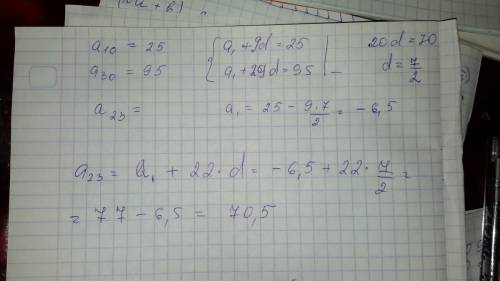 a₁₀ = 25
a₃₀ = 95
{ a₁ + 9d = 25
a₁ + 29d = 95 | −
20d = 70
d = 7/2
a₂₃ =
a₁ = 25 − 9·7/2 = −6,5
a₂₃ = a₁ + 22·d = −6,5 + 22·7/2 =
= 77 − 6,5 = 70,5